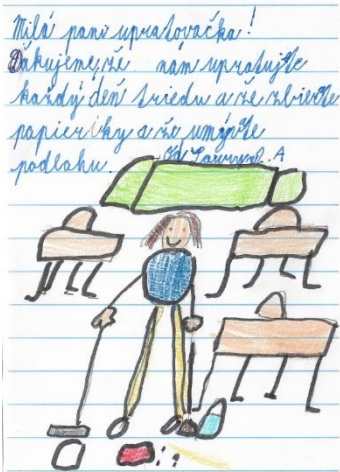 Milá pani upratovačka!
Ďakujeme, že nám upratujete
každý deň triedu a že zbierate
papieriky a že umývate
podlahu. Od